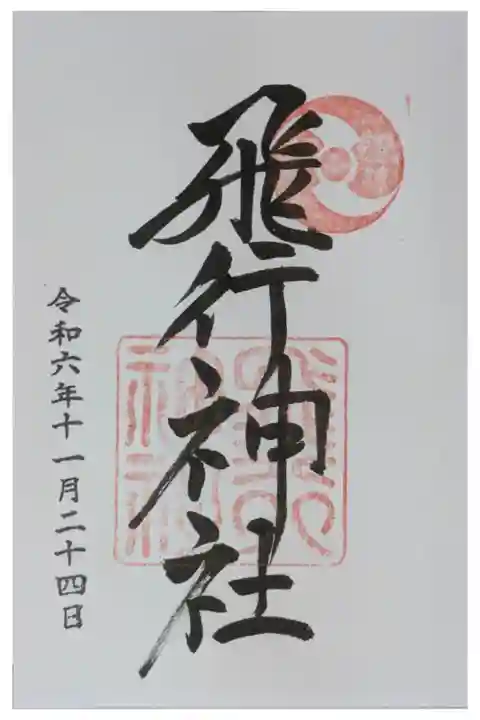 飛行神社
令和六年十一月二十四日